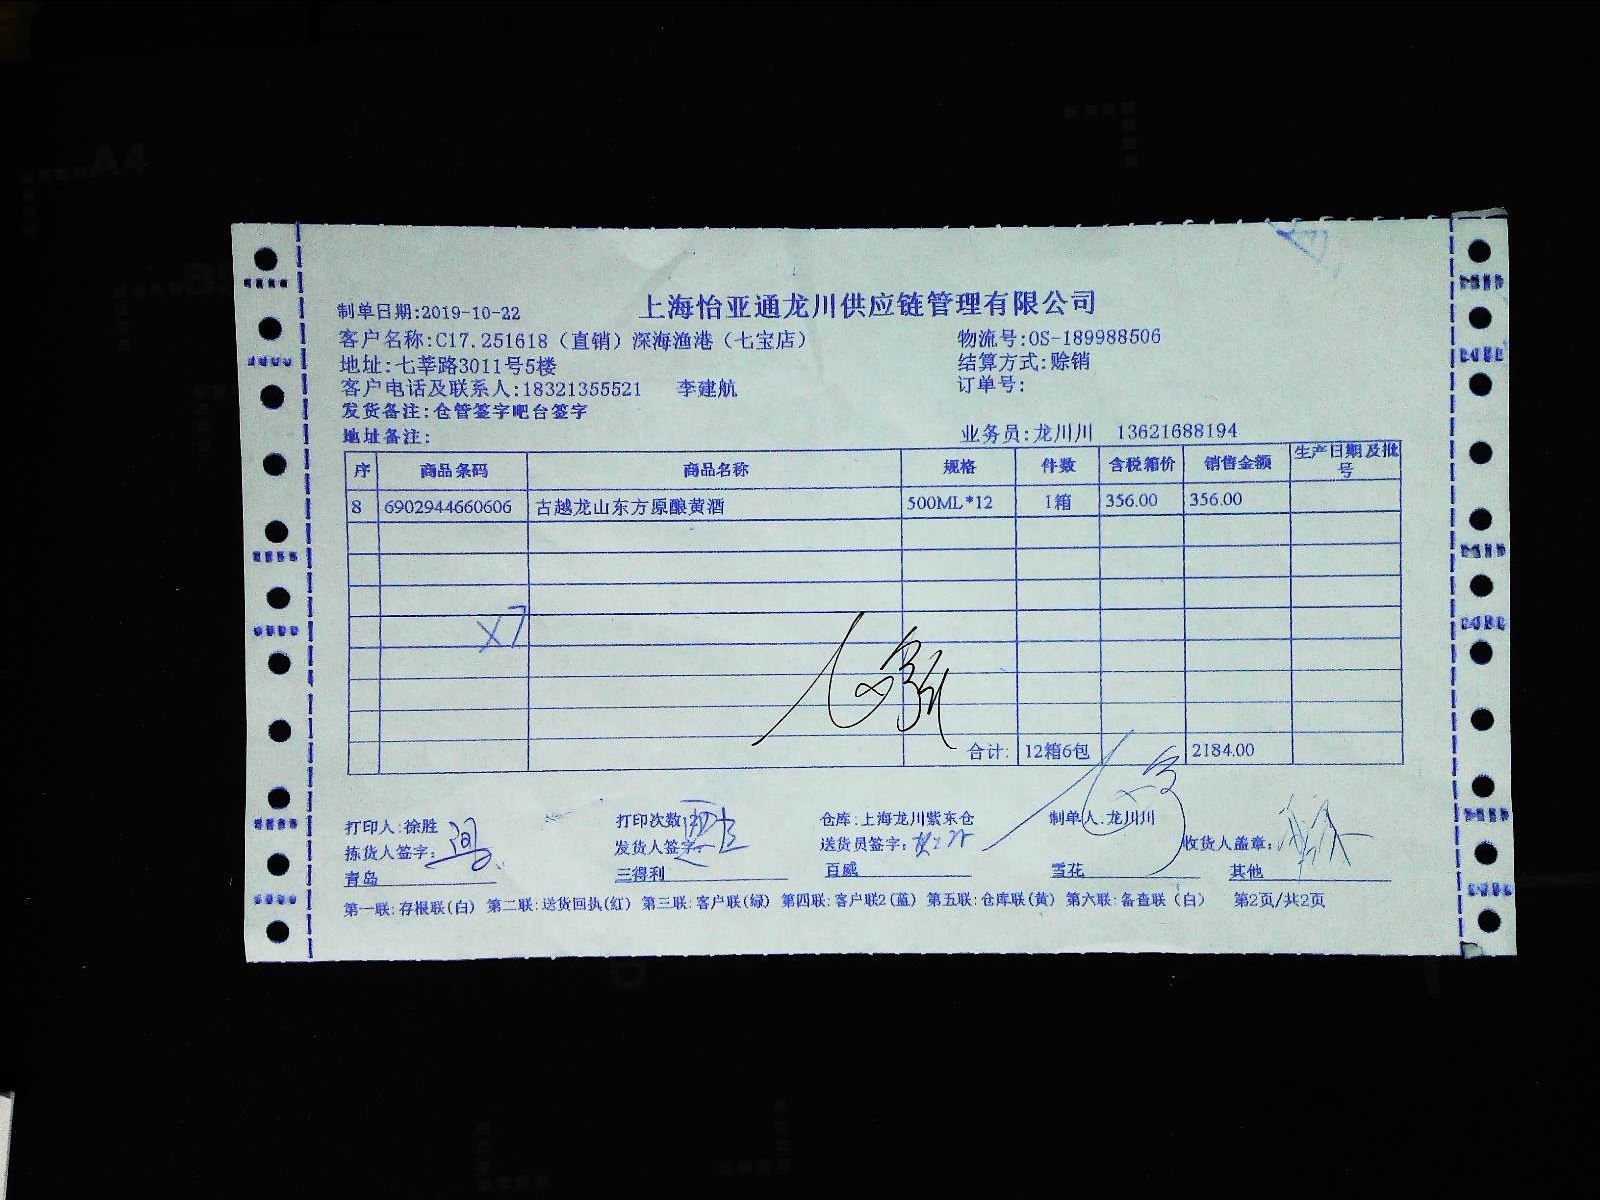 上海怡亚通龙川供应链管理有限公司
制单日期:2019-10-22
客户名称:C17.251618（直销）深海渔港（七宝店） 物流号:OS-189988506
地址:七莘路3011号5楼 结算方式:赊销
客户电话及联系人:18321355521 李建航 订单号:
发货备注:仓管签字吧台签字
地址备注: 业务员:龙川川 13621688194
序 商品条码 商品名称 规格 件数 含税箱价 销售金额 生产日期及批号
8 6902944660606 古越龙山东方原酿黄酒 500ML*12 1箱 356.00 356.00
X7
合计: 12箱6包 2184.00
打印人:徐胜 打印次数 仓库:上海龙川紫东仓 制单人:龙川川
拣货人签字: 发货人签字: 送货员签字: 收货人盖章:
青岛 三得利 百威 雪花 其他
第一联:存根联(白) 第二联:送货回执(红) 第三联:客户联(绿) 第四联:客户联2(蓝) 第五联:仓库联(黄) 第六联:备查联（白） 第2页/共2页
A4